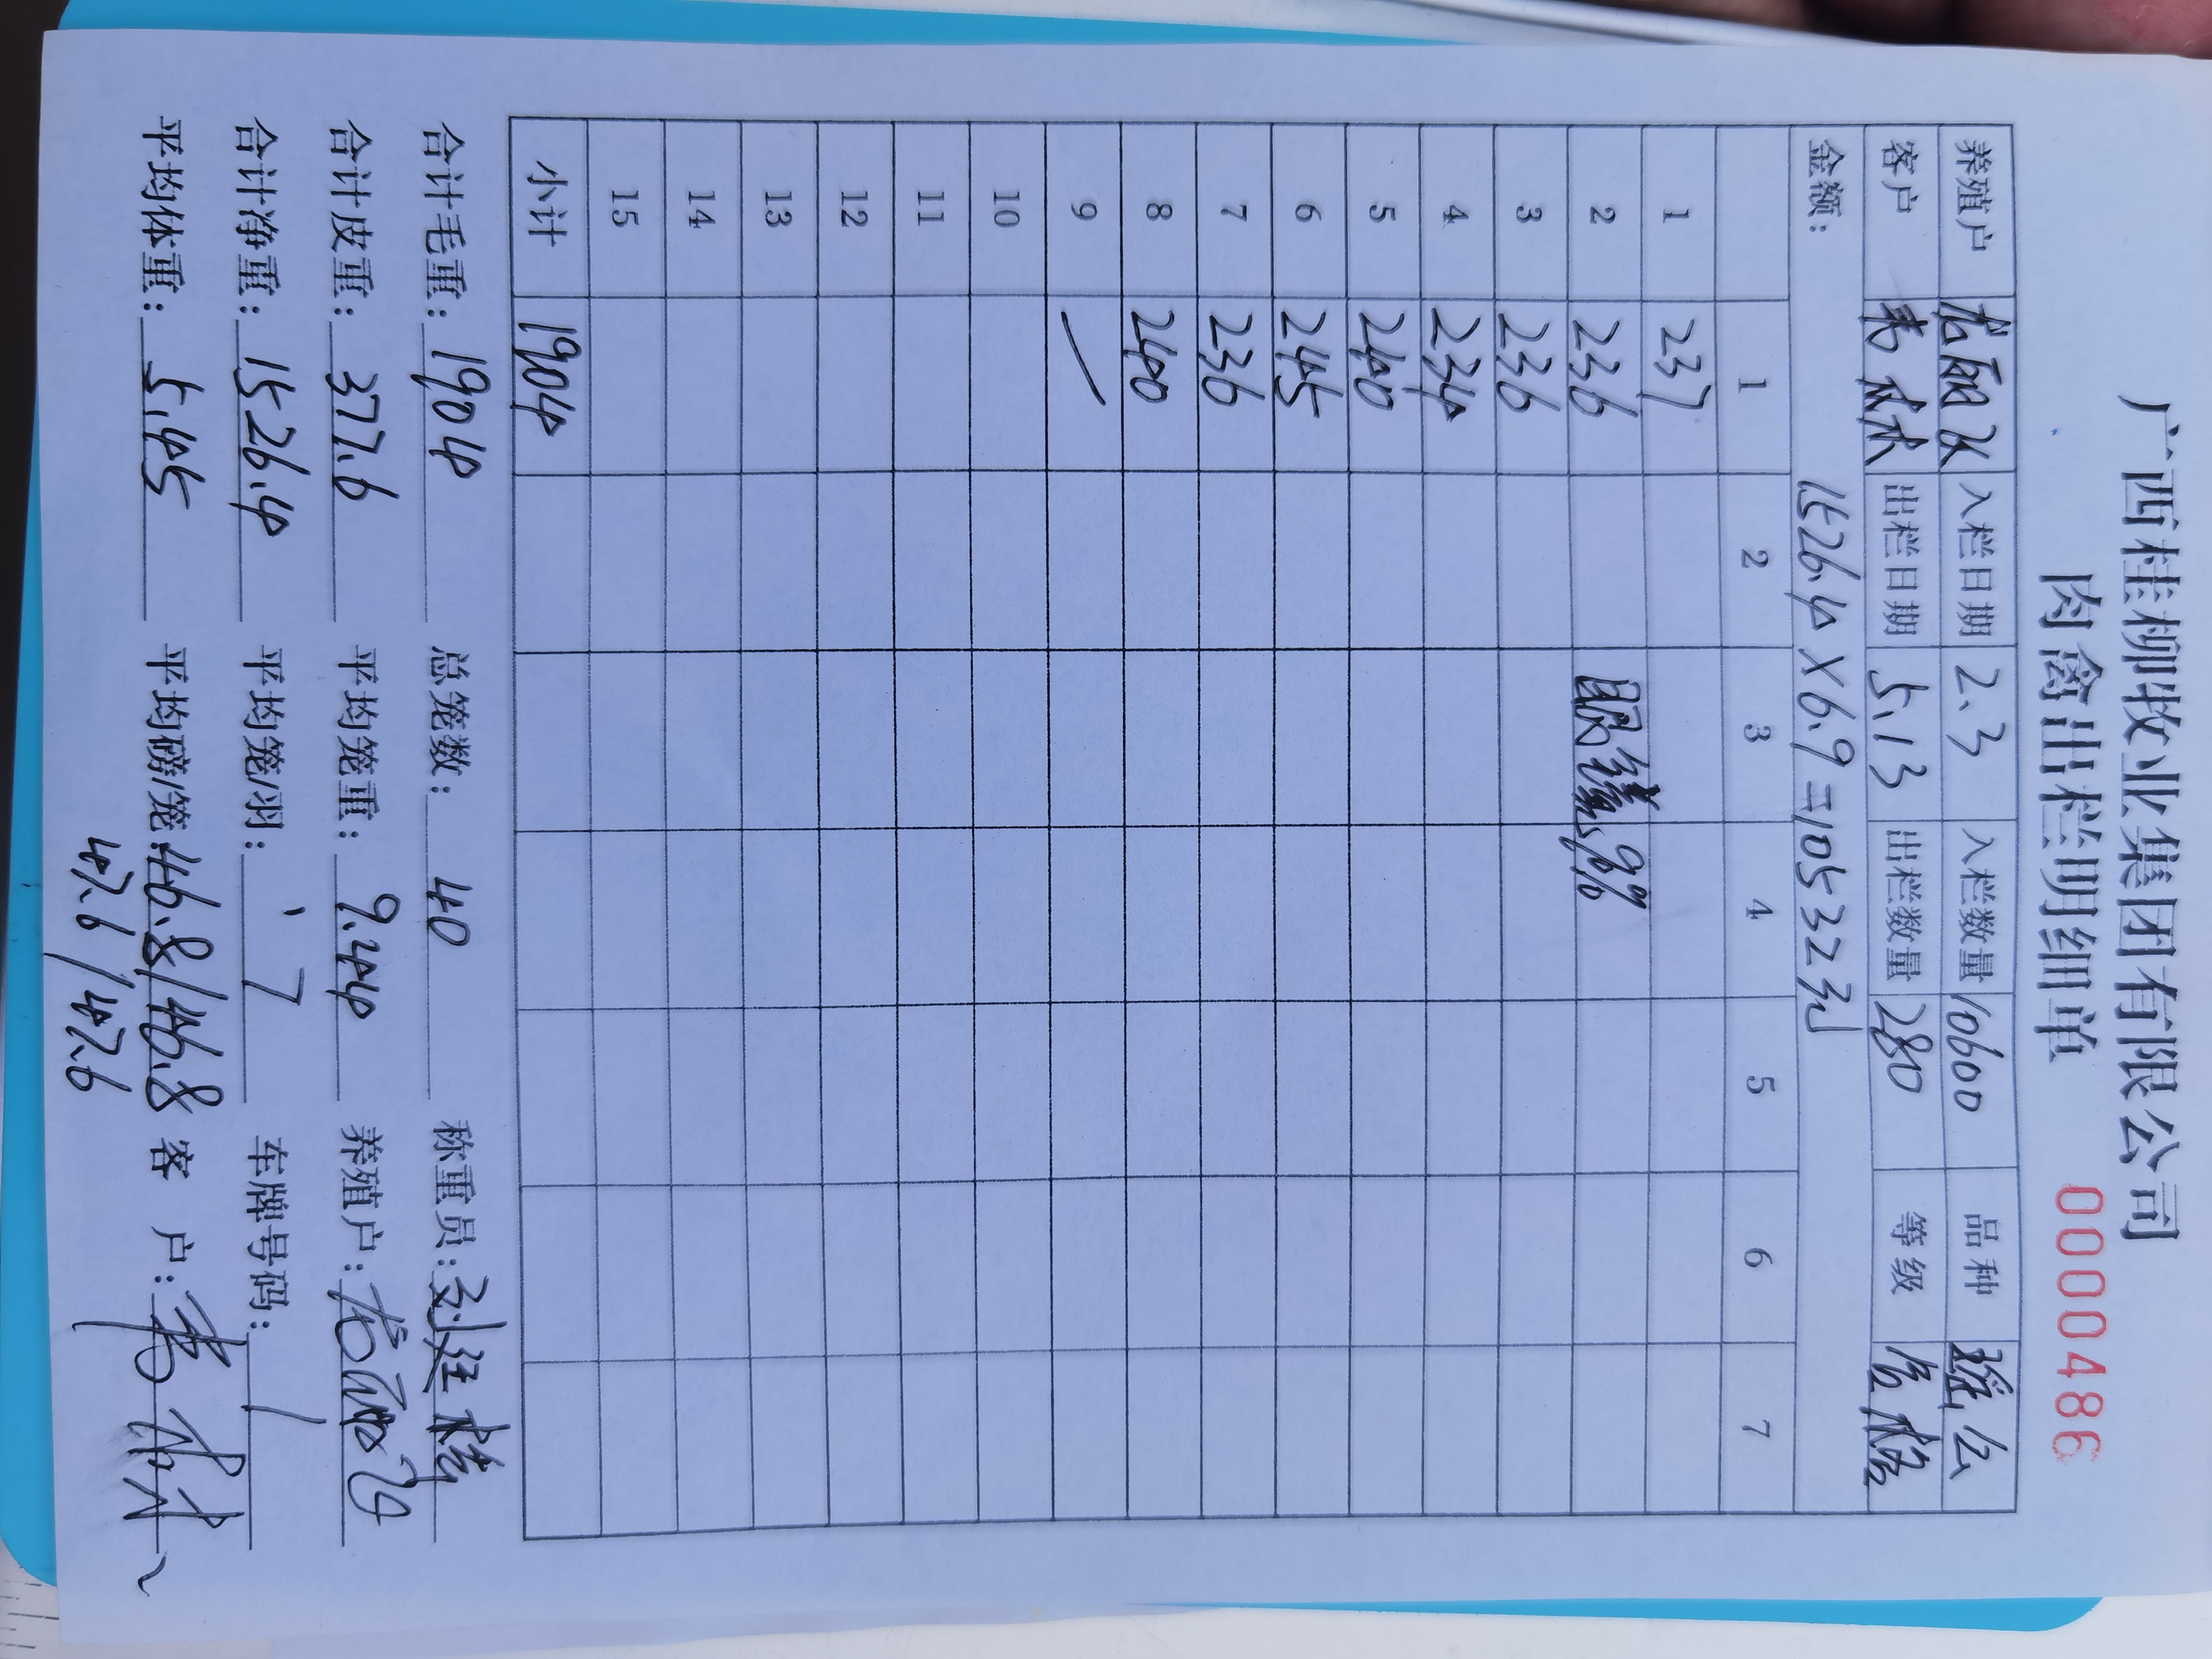 广西桂柳牧业集团有限公司
肉禽出栏明细单 0000486
养殖户 入栏日期 2.3 入栏数量 10600 品种 瑶公
客户 韦林 出栏日期 5.13 出栏数量 280 等级 合格
金额: 1526.4×6.9=10532元
1 2 3 4 5 6 7
1 237
2 236 眼镜9%
3 236
4 234
5 240
6 245
7 236
8 240
9
10
11
12
13
14
15
小计 1904
合计毛重: 1904 总笼数: 40 称重员:
合计皮重: 377.6 平均笼重: 9.44 养殖户:
合计净重: 1526.4 平均笼/羽: 7 车牌号码: /
平均体重: 5.45 平均磅/笼: 46.8/46.8 客 户: 韦林
47.6/47.6